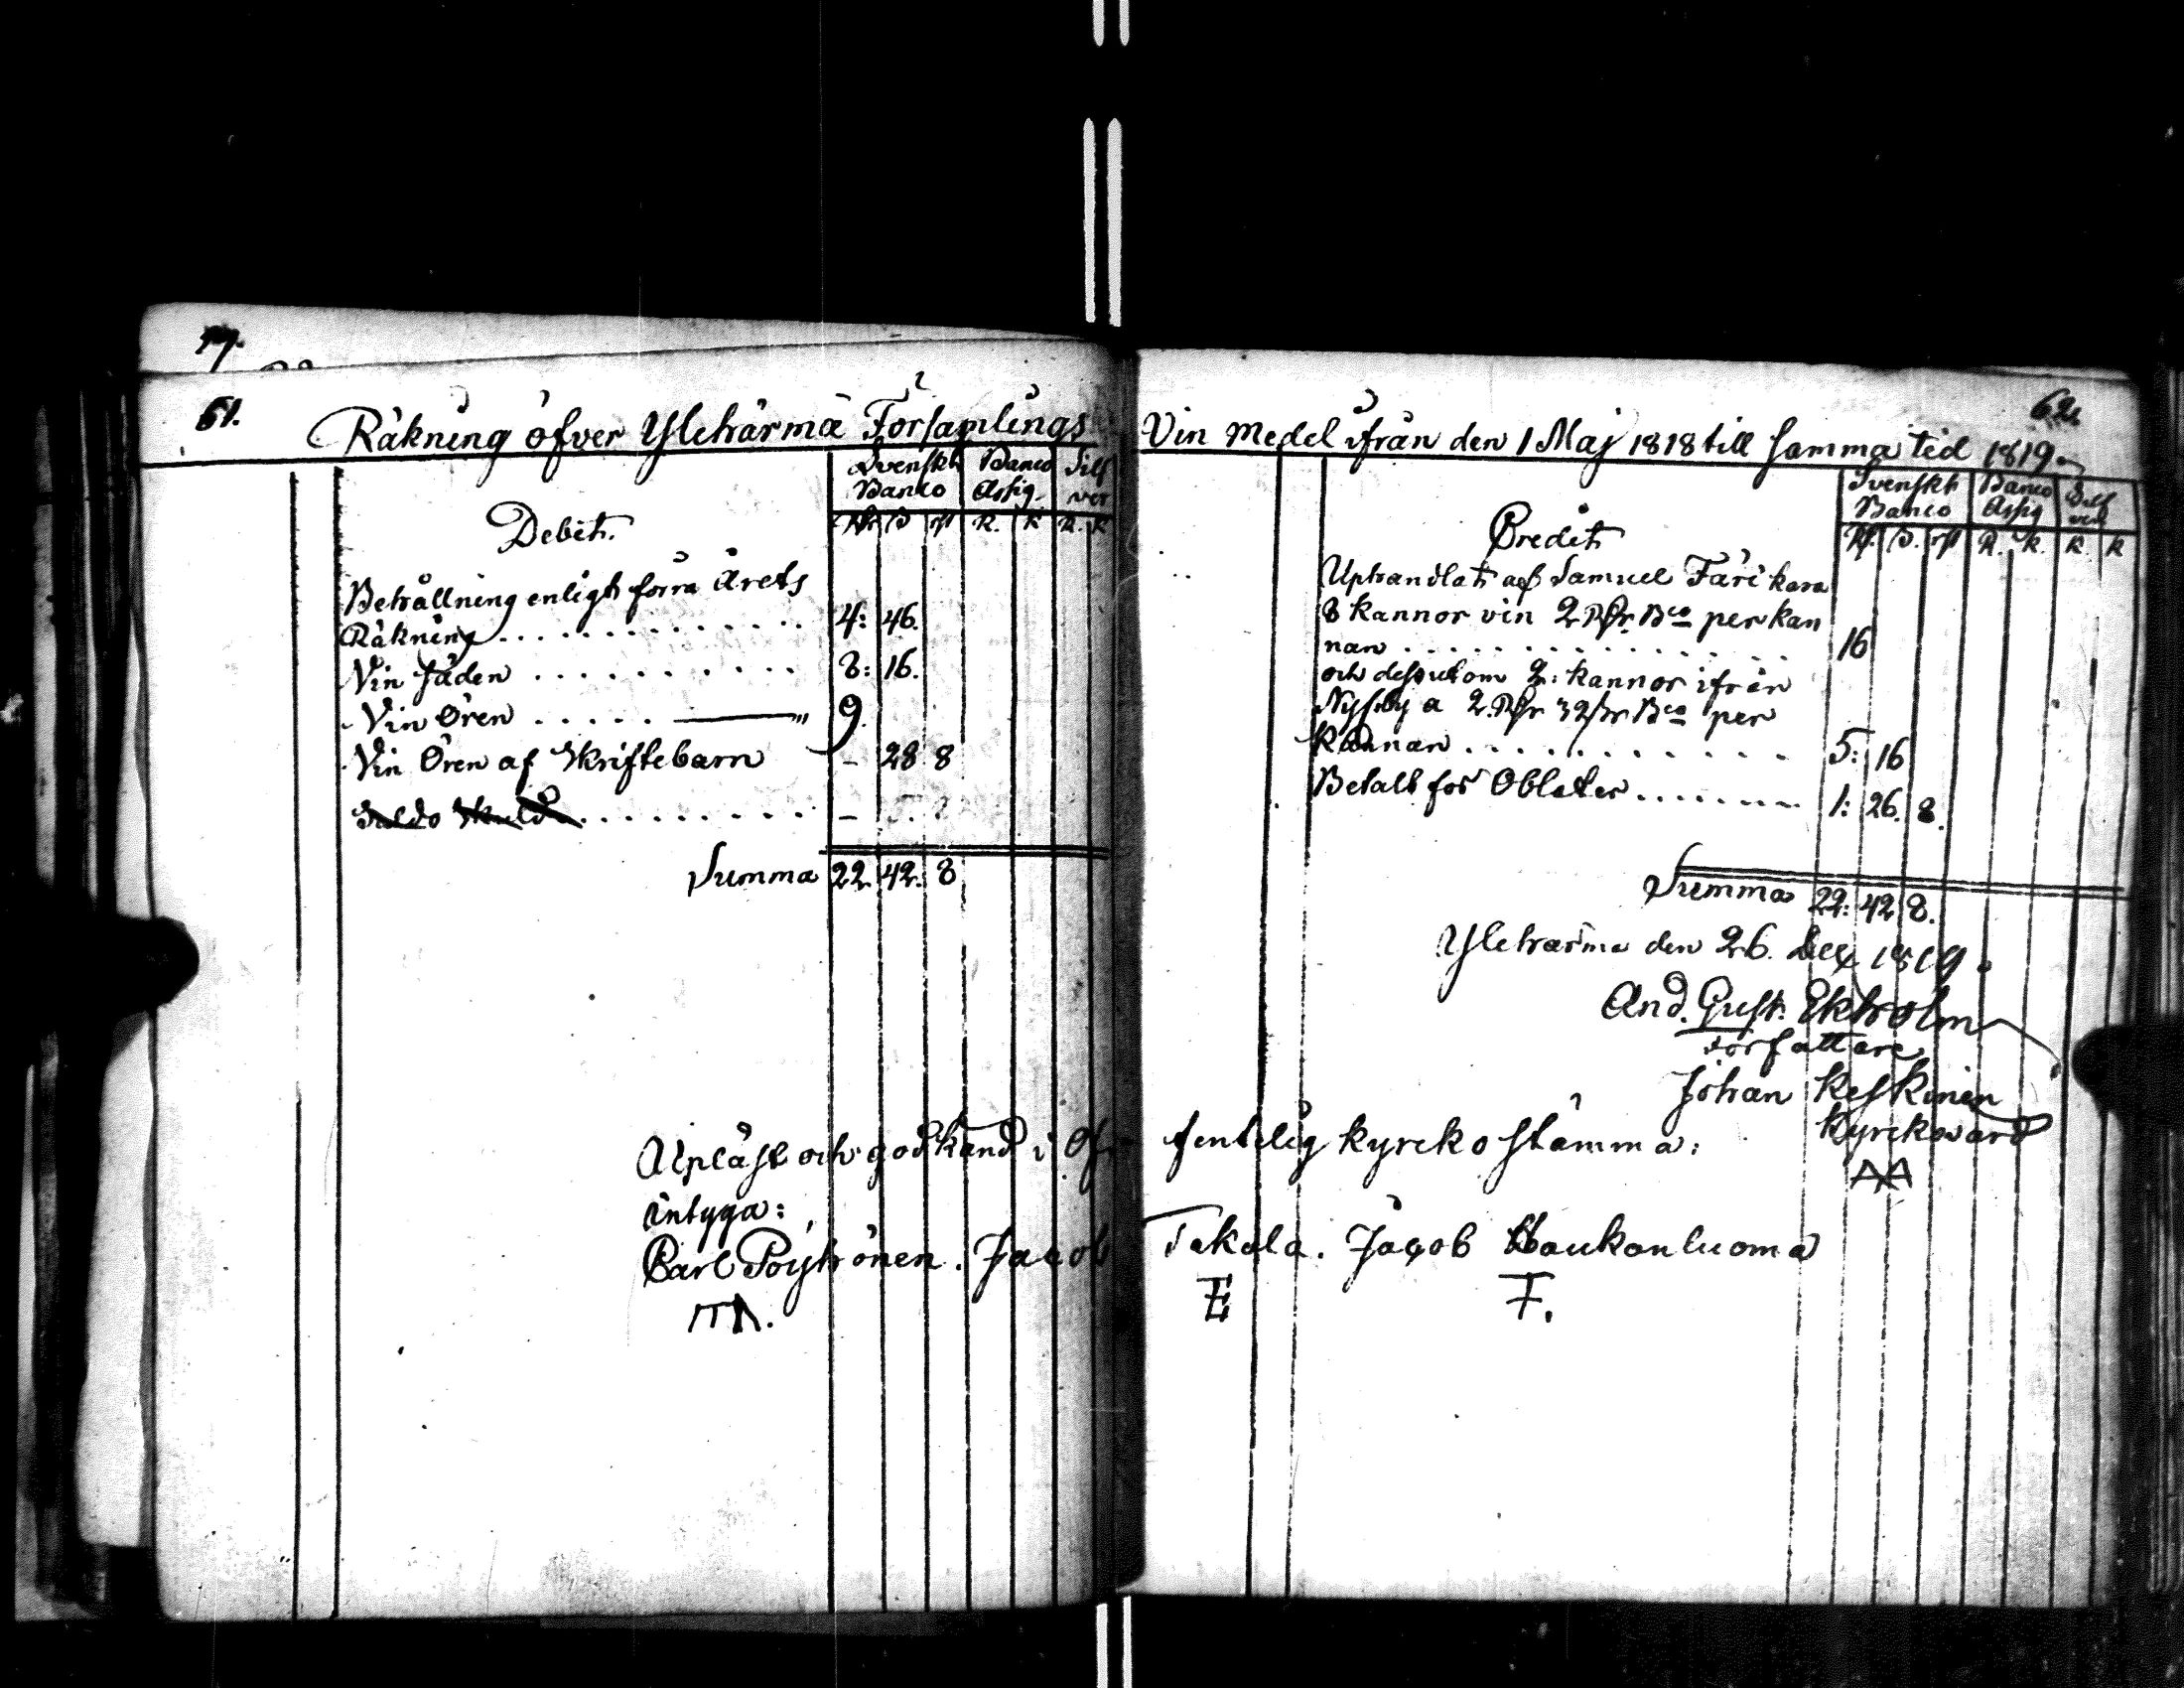 77.
61.
Räkning öfver Ylehärmä Församlings
Svenskt Banco Silf
Banco Assig. ver
Debet. R. K R. K
Behållning enligt förra Årets
Räkning . . . . . . . . . . . . . 4: 46.
Vin Säden . . . . . . . . . . 8: 16.
Vin Ören . . . . . ——— " 9.
Vin Ören af Skriftebarn – 28 8
Saldo Skuld . . . . . . . . . –
Summa 22. 42. 8
Upläst och godkänd i Of
intyga:
Carl Pöyhönen. Jacob
62.
Vin Medel ifrån den 1 Maj 1818 till samma tid 1819.
Svenskt Banco Silf
Banco Assig ver
Credit R. K. R. K
Uphandlat af Samuel Färikara
8 kannor vin 2 Rdr Bco per kan
nan . . . . . . . . . . . . . . . . . 16
och dessutom 2: kannor ifrån
Nyssby a 2 Rdr 32 s Bco per
Kannan . . . . . . . . . . . 5: 16
Betalt för Oblater . . . . . . . 1: 26. 8.
Summa 22: 42 8.
Ylehärmä den 26. Dec 1819.
And. Gust. Ekholm
Författare
Johan Keskinen
Kyrkovärd
fentelig kyrcko stämma:
Takala. Jacob Haukonluoma
E F.